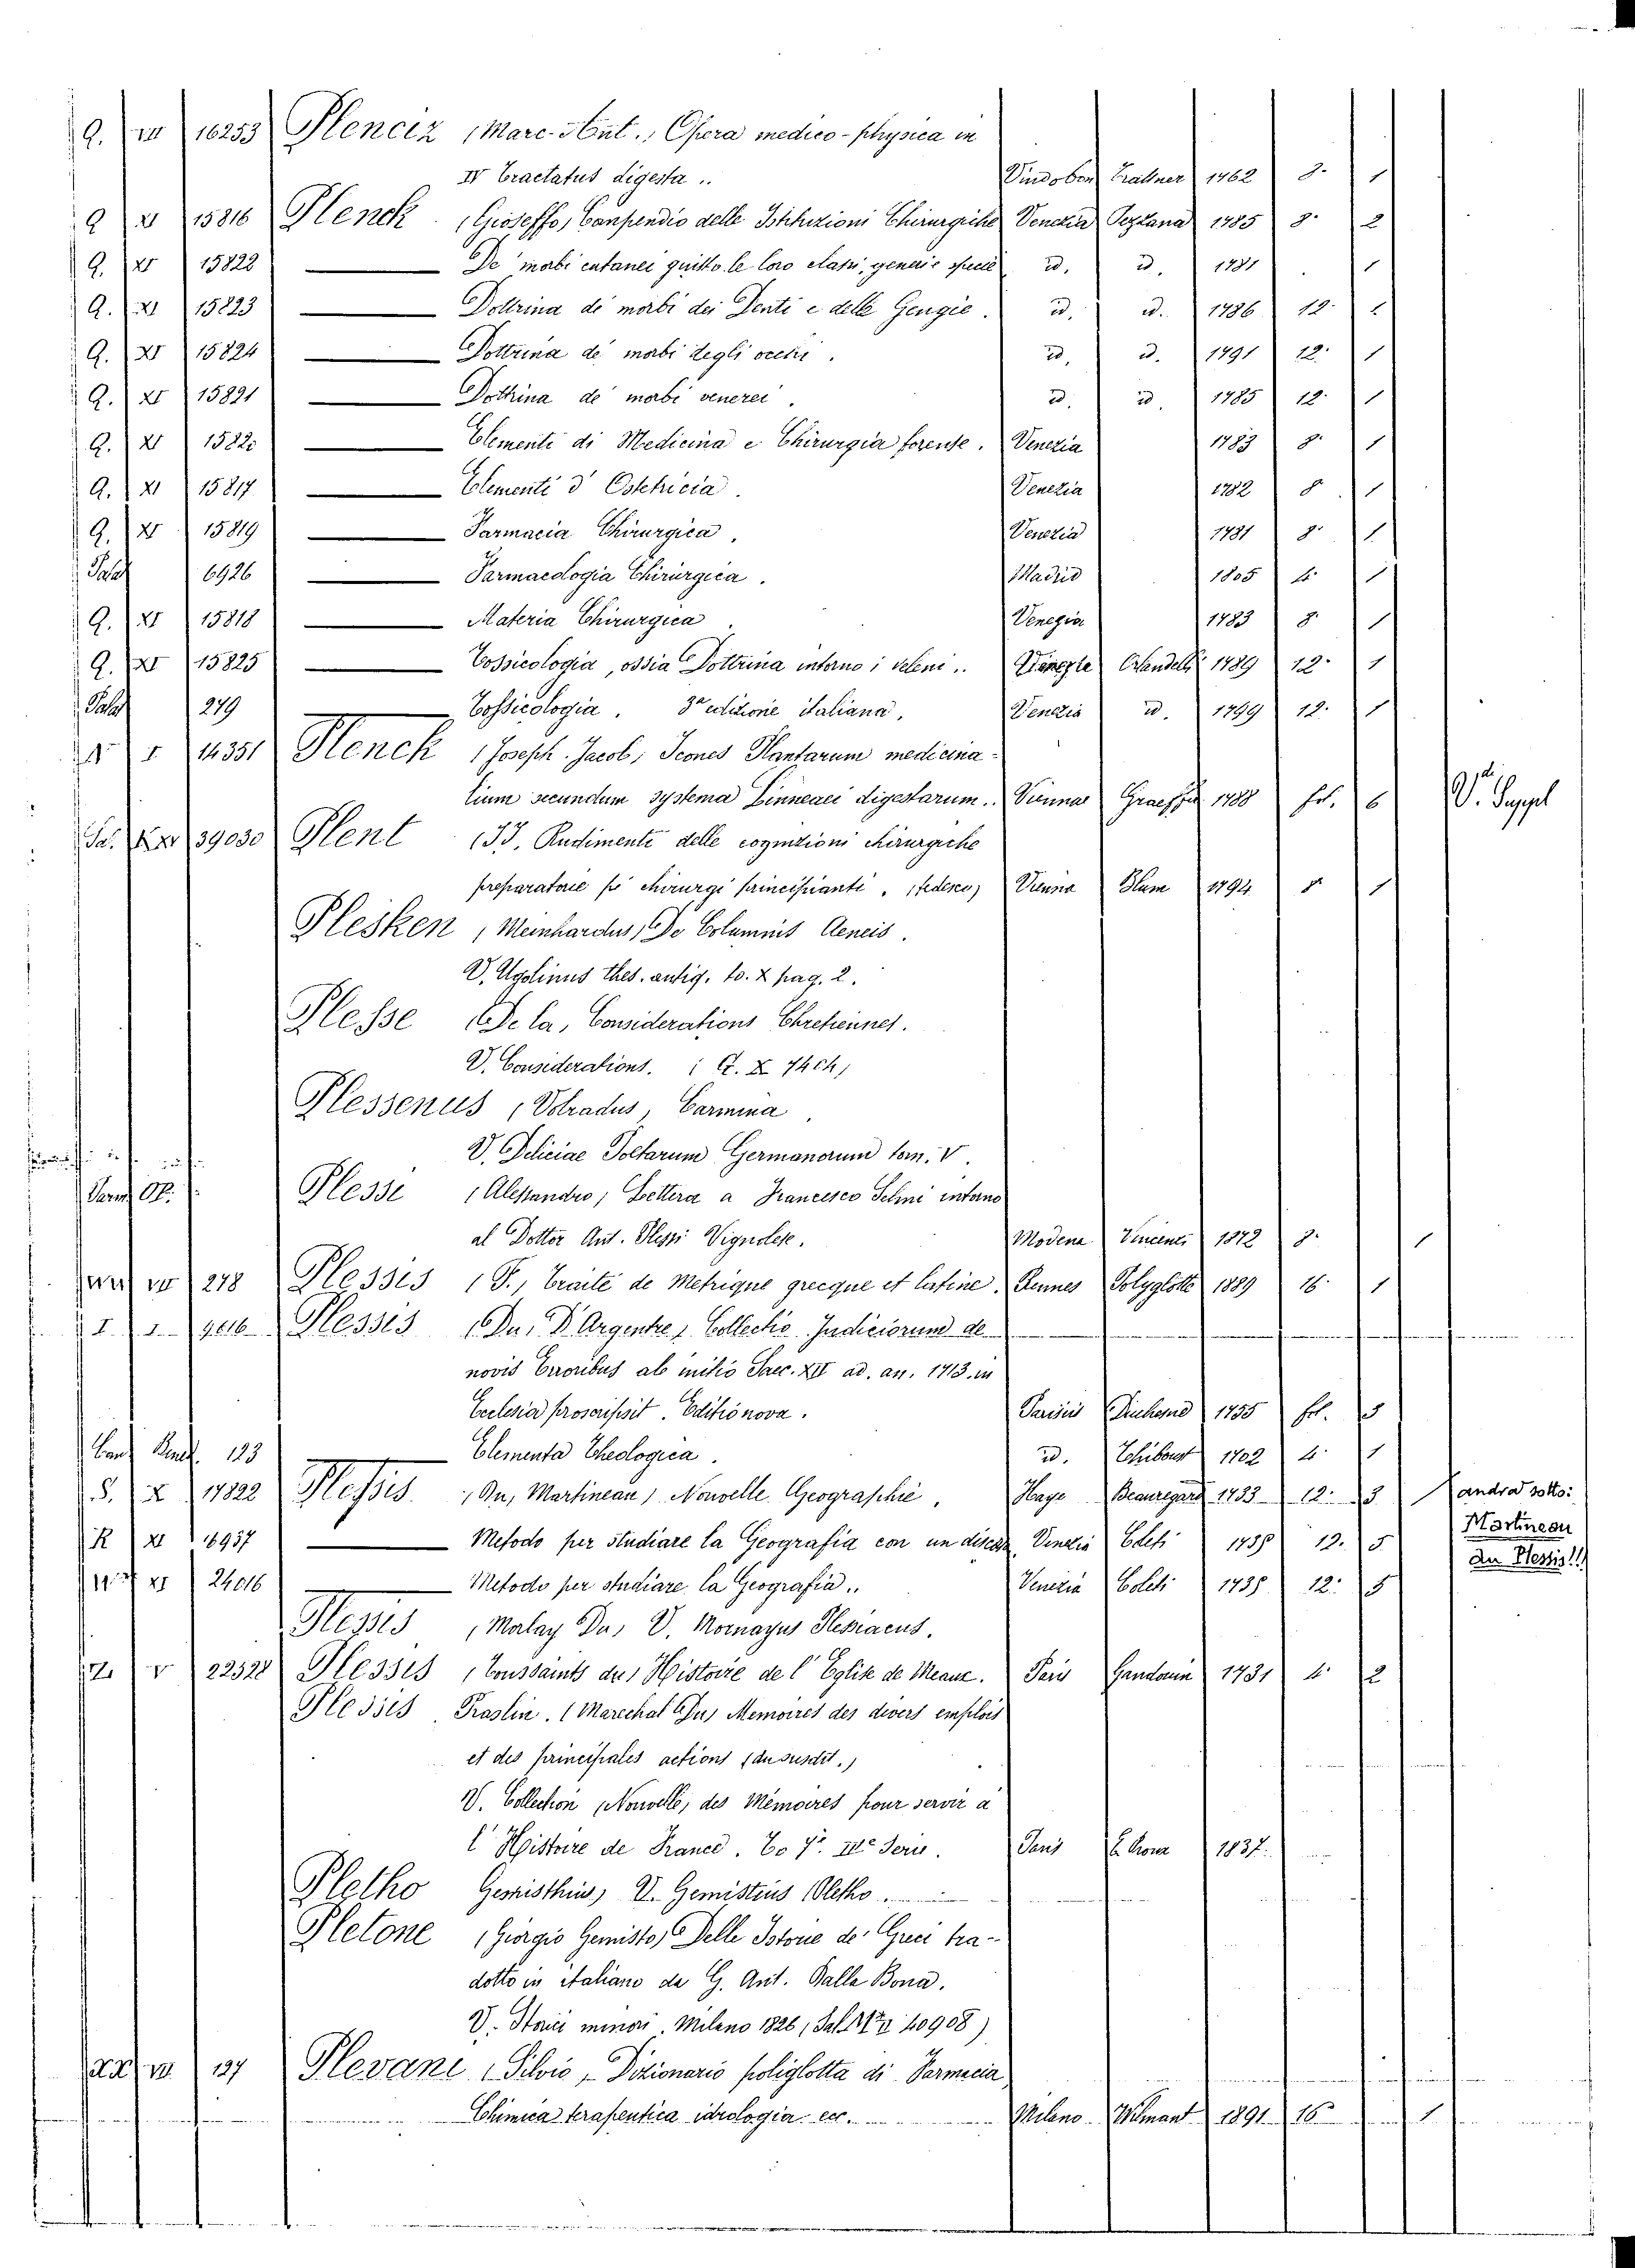 Q. VII 16253 Plenciz (Marc. Ant.), Opera medico-physica in
IV Tractatus digesta.. Vindobon Trattner 1762 8. 1
Q XI 15816 Plenck (Gioseffo) Conpendio delle Istituzioni Chirurgiche Venezia Pezzana 1785 8. 2
Q. XI 15822 ——— De' morbi cutanei giusto le loro classi, generi e specie id. id. 1781 1
Q. XI 15823 ——— Dottrina de morbi dei Denti e delle Gengie. id. id. 1786 12. 1
Q. XI 15824 ——— Dottrina de' morbi degli occhi. id. id. 1791 12. 1
Q. XI 15821 ——— Dottrina de' morbi venerei. id. id. 1785 12. 1
Q. XI 1582 ——— Elementi di Medicina e Chirurgia forense. Venezia 1783 8. 1
Q. XI 15817 ——— Elementi d' Ostetricia. Venezia 1782 8. 1
Q. XI 15819 ——— Farmacia Chirurgica. Venezia 1781 8. 1
6926 ——— Farmacologia Chirurgica. Madrid 1805 4. 1
Q. XI 15818 ——— Materia Chirurgica. Venezia 1783 8. 1
Q. XI 15825 ——— Tossicologia, ossia Dottrina intorno i veleni.. Venezia Orlandelli 1789 12. 1
279 ——— Tossicologia. 3ª edizione italiana. Venezia id. 1799 12. 1
I 14351 Plenck (Joseph. Jacob), Icones Plantarum medicina-
lium secundum systema Linneaei digestarum.. Vienna Graeffer 1788 fol. 6 Vdi Suppl
XV 39030 Plent (J. J.) Rudimenti delle cognizioni chirurgiche
preparatorie pei chirurgi principianti. (tedesco) Vienna Blum 1794 8. 1
Plesken (Meinhardus) De Columnis Aeneis.
V. Ugolinus thes. antiq. to. X pag. 2.
Plesse (De la), Considerations Chretiennes.
V. Considerations.
Plessenus (Volradus), Carmina.
V. Deliciae Poetarum Germanorum tom. V.
Plessi (Alessandro) Lettera a Francesco Selmi intorno
al Dottor Ant. Plessi Vignolese. Modena Vincenzi 1872 8. 1
VII 278 Plessis (F.), Traité de Metrique grecque et latine. Rennes Polyglotte 1889 16. 1
I. I. 9616 Plessis (Du) D'Argentre, Collectio Judiciorum de
novis Erroribus ab initio Saec. XII ad. an. 1713. in
Ecclesia proscripsit. Editio nova. Parisiis Duchesne 1755 fol. 3
123 ——— Elementa Theologica. id. Thiboust 1702 4. 1
S. X 17822 Plessis (Du, Martineau) Nouvelle Geographie. Haye Beauregard 1733 12. 3 andrà sotto:
R XI 16937 ——— Metodo per studiare la Geografia con un discorso Venezia Coleti 1738 12. 5 Martineau
XI 24016 ——— Metodo per studiare la Geografia.. Venezia Coleti 1738 12. 5 du Plessis!!
Plessis (Malay Du) V. Mornayus Plessiacus.
Z. V 22528 Plessis (Toussaints du) Histoire de l' Eglise de Meaux. Paris Gandouin 1731 4. 2
Plessis Praslin. (Marechal Du) Memoires des divers emplois
et des principales actions (du susdit.)
V. Collection (Nouvelle) des Mémoires pour servir à
l' Histoire de France. To 7º. IIIe Serie. Paris 1837.
Pletho Gemisthius) V. Gemistius Pletho.
Pletone (Giorgio Gemisto) Delle Istorie de' Greci tra-
dotto in italiano da G. Ant. Balla Bona.
V. Storici minori. Milano 1826
VII 127 Plevani (Silvio) Dizionario poliglotta di Farmacia
Chimica terapeutica idrologia ecc. Milano Wilmant 1891 16 1